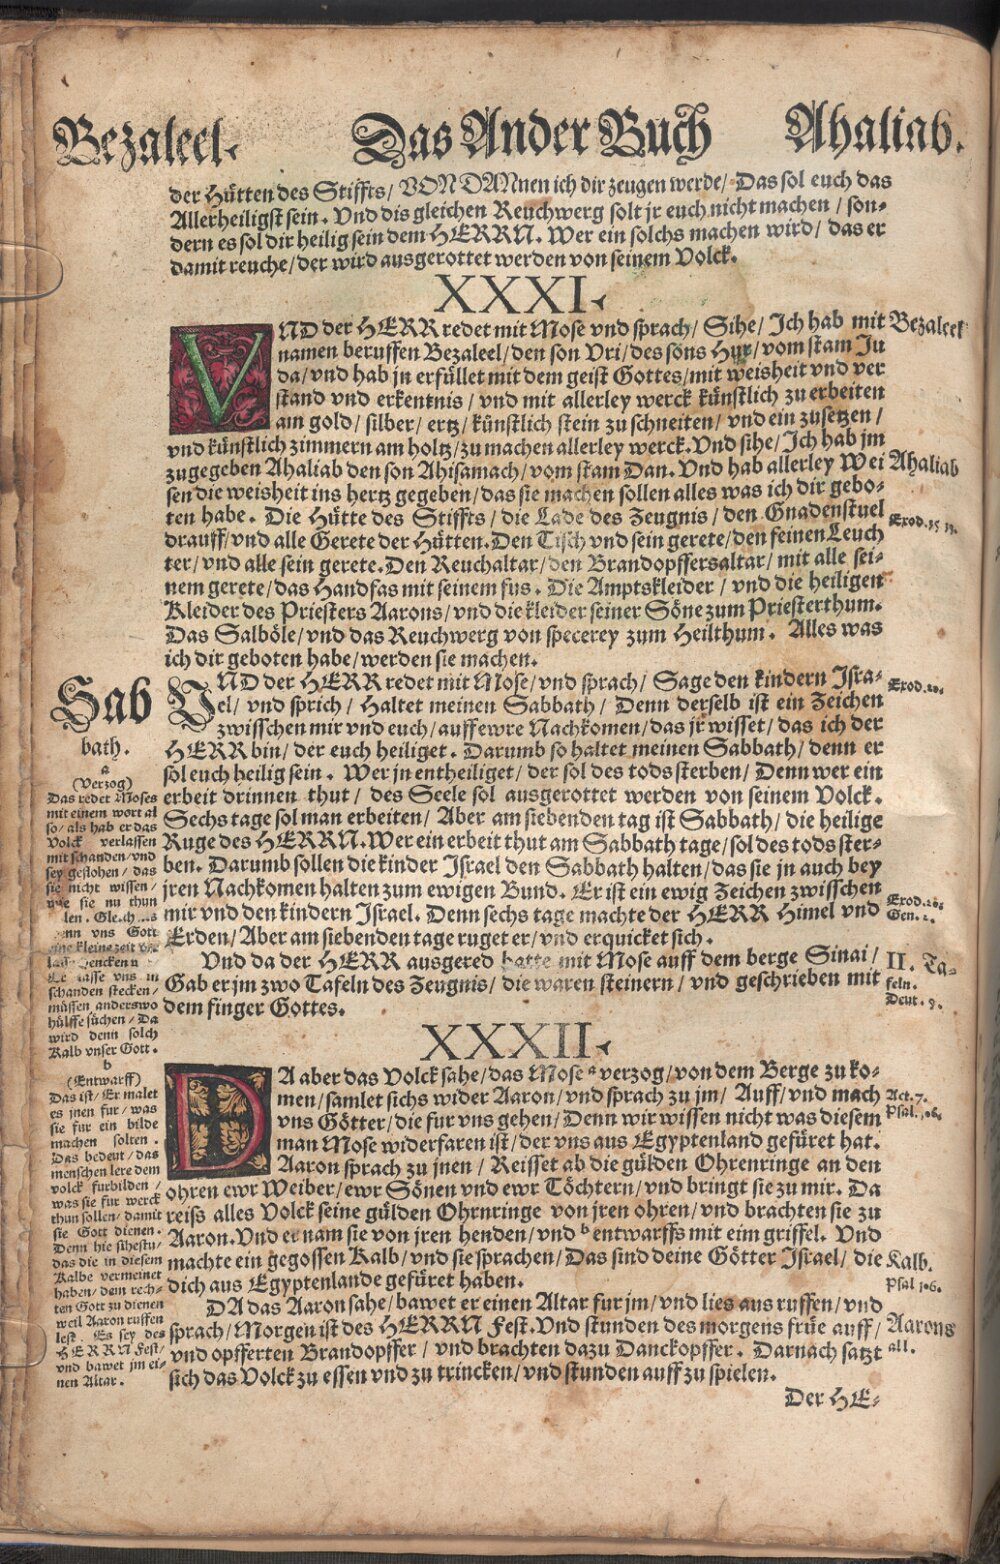 Bezaleel. Das Ander Buch Ahaliab.
der Hütten des Stiffts/ VON DANnen ich dir zeugen werde/ Das sol euch das
Allerheiligst sein. Vnd dis gleichen Reuchwerg solt jr euch nicht machen/ son-
dern es sol dir heilig sein dem HERRN. Wer ein solchs machen wird/ das er
damit reuche/ der wird ausgerottet werden von seinem Volck.
XXXI.
VND der HERR redet mit Mose vnd sprach/ Sihe/ Ich hab mit
namen beruffen Bezaleel/ den son Vri/ des sons Hur/ vom stam Ju
da/ vnd hab jn erfüllet mit dem geist Gottes/ mit weisheit vnd ver
stand vnd erkentnis/ vnd mit allerley werck künstlich zu erbeiten
am gold/ silber/ ertz/ künstlich stein zu schneiten/ vnd ein zusetzen/
vnd künstlich zimmern am holtz/ zu machen allerley werck. Vnd sihe/ Ich hab jm
zugegeben Ahaliab den son Ahisamach/ vom stam Dan. Vnd hab allerley Wei
sen die weisheit ins hertz gegeben/ das sie machen sollen alles was ich dir gebo-
ten habe. Die Hütte des Stiffts/ die Lade des Zeugnis/ den Gnadenstuel
drauff/ vnd alle Gerete der Hütten. Den Tisch vnd sein gerete/ den feinen Leuch
ter/ vnd alle sein gerete. Den Reuchaltar/ den Brandopffersaltar/ mit alle sei-
nem gerete/ das Handfas mit seinem fus. Die Amptskleider/ vnd die heiligen
Kleider des Priesters Aarons/ vnd die kleider seiner Söne zum Priesterthum.
Das Salböle/ vnd das Reuchwerg von specerey zum Heilthum. Alles was
ich dir geboten habe/ werden sie machen.
Bezaleel
Ahaliab
Exod. 35
VND der HERR redet mit Mose/ vnd sprach/ Sage den kindern Isra-
el/ vnd sprich/ Haltet meinen Sabbath/ Denn derselb ist ein Zeichen
zwisschen mir vnd euch/ auff ewre Nachkomen/ das jr wisset/ das ich der
HERR bin/ der euch heiliget. Darumb so haltet meinen Sabbath/ denn er
sol euch heilig sein. Wer jn entheiliget/ der sol des tods sterben/ Denn wer ein
erbeit drinnen thut/ des Seele sol ausgerottet werden von seinem Volck.
Sechs tage sol man erbeiten/ Aber am siebenden tag ist Sabbath/ die heilige
Ruge des HERRN. Wer ein erbeit thut am Sabbath tage/ sol des tods ster-
ben. Darumb sollen die kinder Israel den Sabbath halten/ das sie jn auch bey
jren Nachkomen halten zum ewigen Bund. Er ist ein ewig Zeichen zwisschen
mir vnd den kindern Israel. Denn sechs tage machte der HERR Himel vnd
Erden/ Aber am siebenden tage ruget er/ vnd erquicket sich.
Vnd da der HERR ausgered hatte mit Mose auff dem berge Sinai/
Gab er jm zwo Tafeln des Zeugnis/ die waren steinern/ vnd geschrieben mit
dem finger Gottes.
Exod. 20.
Exod.
Gen.
II. Ta-
feln.
Deut. 9.
XXXII.
DA aber das Volck sahe/ das Mose a verzog/ von dem Berge zu ko-
men/ samlet sichs wider Aaron/ vnd sprach zu jm/ Auff/ vnd mach
vns Götter/ die fur vns gehen/ Denn wir wissen nicht was diesem
man Mose widerfaren ist/ der vns aus Egyptenland gefüret hat.
Aaron sprach zu jnen/ Reisset ab die gülden Ohrenringe an den
ohren ewr Weiber/ ewr Sönen vnd ewr Töchtern/ vnd bringt sie zu mir. Da
reiss alles Volck seine gülden Ohrnringe von jren ohren/ vnd brachten sie zu
Aaron. Vnd er nam sie von jren henden/ vnd b entwarffs mit eim griffel. Vnd
machte ein gegossen Kalb/ vnd sie sprachen/ Das sind deine Götter Israel/ die
dich aus Egyptenlande gefüret haben.
DA das Aaron sahe/ bawet er einen Altar fur jm/ vnd lies aus ruffen/ vnd
sprach/ Morgen ist des HERRN Fest. Vnd stunden des morgens früe auff/
vnd opfferten Brandopffer/ vnd brachten dazu Danckopffer. Darnach satzt
sich das Volck zu essen vnd zu trincken/ vnd stunden auff zu spielen.
Der HE-
Act. 7.
Psal. 106.
Kalb.
Psal 106.
Aarons
all.
Sab
bath.
a
(Verzog)
Das redet Moses
mit einem wort al
so/ als hab er das
Volck verlassen
mit schanden/ vnd
sey geflohen/ das
sie nicht wissen/
wie sie nu thun
sollen. Gleich als
wenn vns Gott
eine kleine zeit
lasse
Er lasse vns in
schanden stecken/
müssen anderswo
hülffe süchen/ Da
wird denn solch
Kalb vnser Gott.
b
(Entwarff)
Das ist/ Er malet
es jnen fur/ was
sie fur ein bilde
machen solten.
Das bedeut/ das
menschen lere dem
volck furbilden/
was sie fur werck
thun sollen/ damit
sie Gott dienen.
Denn hie sihestu/
das die in diesem
Kalbe vermeinet
haben/ dem rech-
ten Gott zu dienen
weil Aaron ruffen
lest. Es sey des
HERRN Fest/
vnd bawet jm ei-
nen Altar.